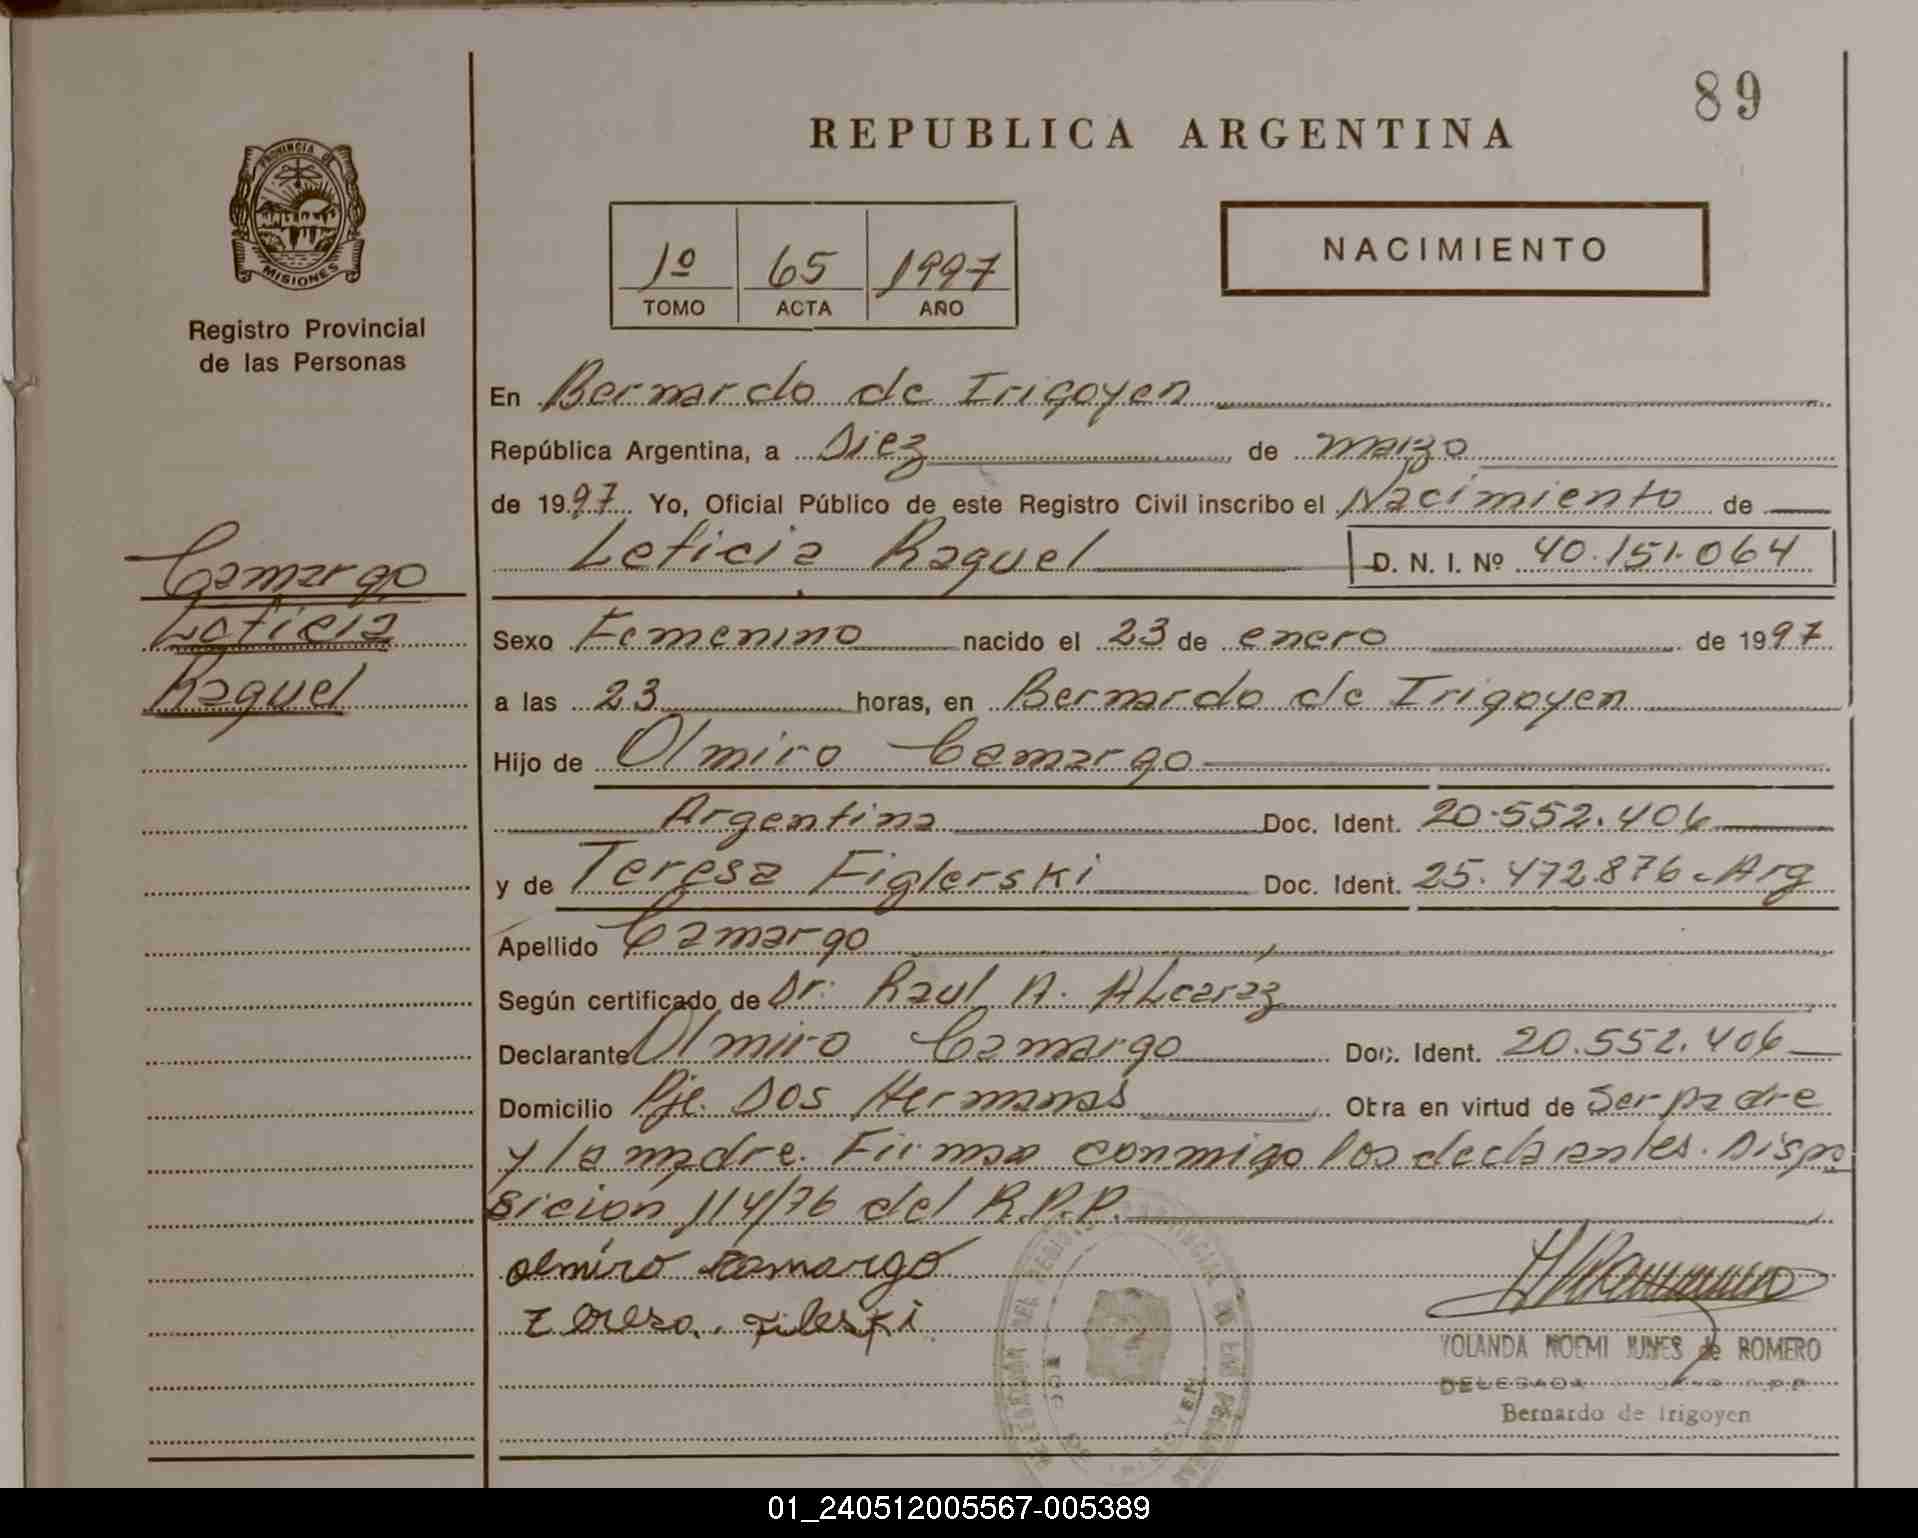 89
REPUBLICA ARGENTINA
PROVINCIA DE
MISIONES
Registro Provincial
de las Personas
1º 65 1997
TOMO ACTA AÑO
NACIMIENTO
En Bernardo de Irigoyen
República Argentina, a Diez de marzo
de 1997 Yo, Oficial Público de este Registro Civil inscribo el Nacimiento de
Leticia Raquel D. N. I. Nº 40.151.064
Camargo
Leticia
Raquel
Sexo Femenino nacido el 23 de enero de 1997
a las 23 horas, en Bernardo de Irigoyen
Hijo de Olmiro Camargo
Argentina Doc. Ident. 20.552.406
y de Teresa Figlerski Doc. Ident. 25.472.876 - Arg
Apellido Camargo
Según certificado de Dr. Raul A. Alcaráz
Declarante Olmiro Camargo Doc. Ident. 20.552.406
Domicilio Pje. Dos Hermanas Obra en virtud de Ser padre
y la madre. Firman conmigo los declarantes. Dispo
sición 114/76 del R.P.P.
olmiro camargo
tereza
YOLANDA NOEMI JUNES de ROMERO
DELEGADA R.P.P.
Bernardo de Irigoyen
01_240512005567-005389